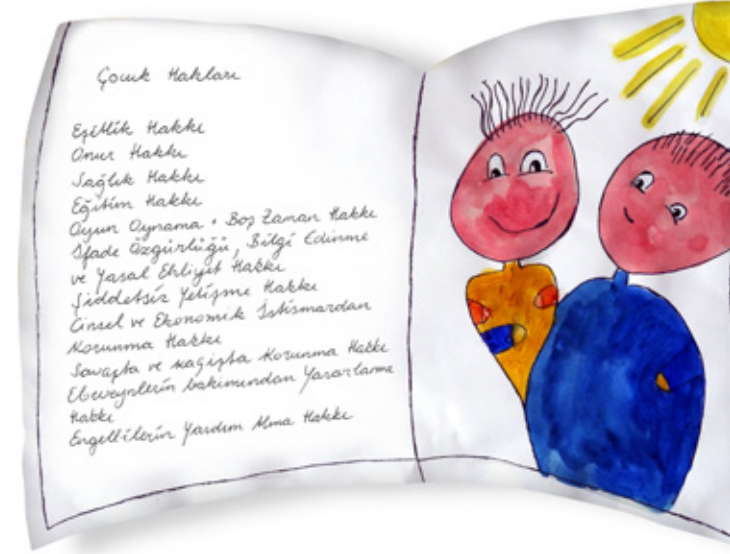 Çocuk Hakları
Eşitlik Hakkı
Onur Hakkı
Sağlık Hakkı
Eğitim Hakkı
Oyun Oynama + Boş Zaman Hakkı
İfade Özgürlüğü, Bilgi Edinme
ve Yasal Ehliyet Hakkı
Şiddetsiz Yetişme Hakkı
Cinsel ve Ekonomik İstismardan
Korunma Hakkı
Savaşta ve kaçışta Korunma Hakkı
Ebeveynlerin bakımından Yararlanma
Hakkı
Engellilerin Yardım Alma Hakkı